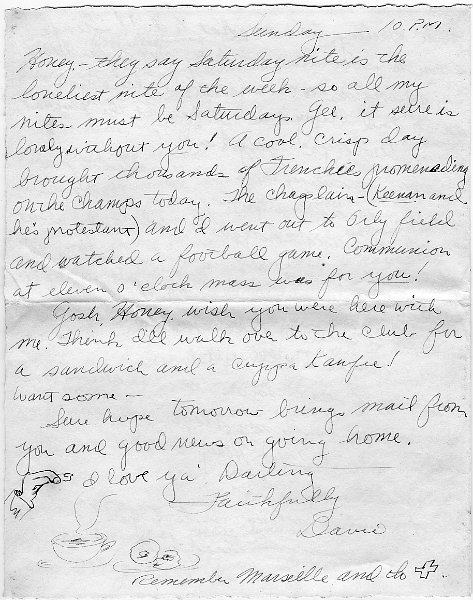 Sunday — 10 P.M.
Honey - they say Saturday nite is the
loneliest nite of the week - so all my
nites must be Saturdays. Gee, it sure is
lonely without you! A cool, crisp day
brought thousands of Frenchee promenading
on the Champs today. The Chaplain - (Keenan and
he's protestant) and I went out to Orly field
and watched a football game. Communion
at eleven o'clock mass was for you!
Gosh, Honey, wish you were here with
me. Think I'll walk over to the club for
a sandwich and a cuppa Kaufee!
Want some —
Sure hope tomorrow brings mail from
you and good news on going home.
I love ya' Darling
Faithfully
Dave
Remember Marseille and the